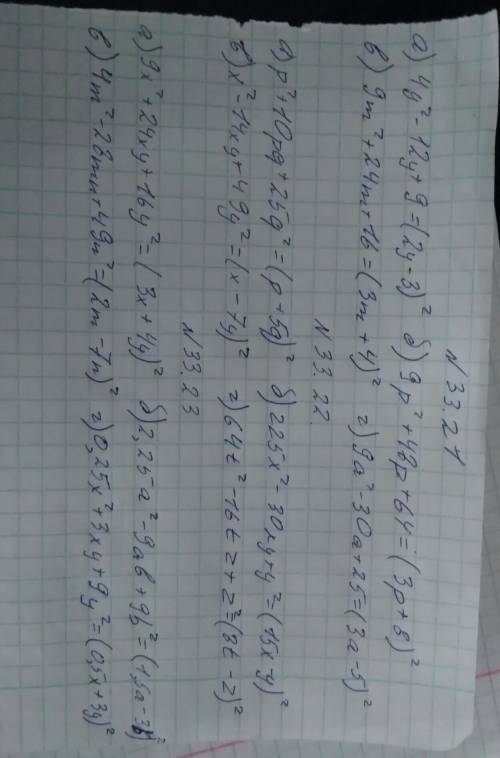 N 33.21
а) 4y² - 12y + 9 = (2y - 3)² б) 9p² + 48p + 64 = (3p + 8)²
в) 9m² + 24m + 16 = (3m + 4)² г) 9a² - 30a + 25 = (3a - 5)²
N 33.22.
а) p² + 10pq + 25q² = (p + 5q)² б) 225x² - 30xy + y² = (15x - y)²
в) x² - 14xy + 49y² = (x - 7y)² г) 64t² - 16tz + z² = (8t - z)²
N 33.23
а) 9x² + 24xy + 16y² = (3x + 4y)² б) 2,25a² - 9ab + 9b² = (1,5a - 3b)²
в) 4m² - 28mn + 49n² = (2m - 7n)² г) 0,25x² + 3xy + 9y² = (0,5x + 3y)²